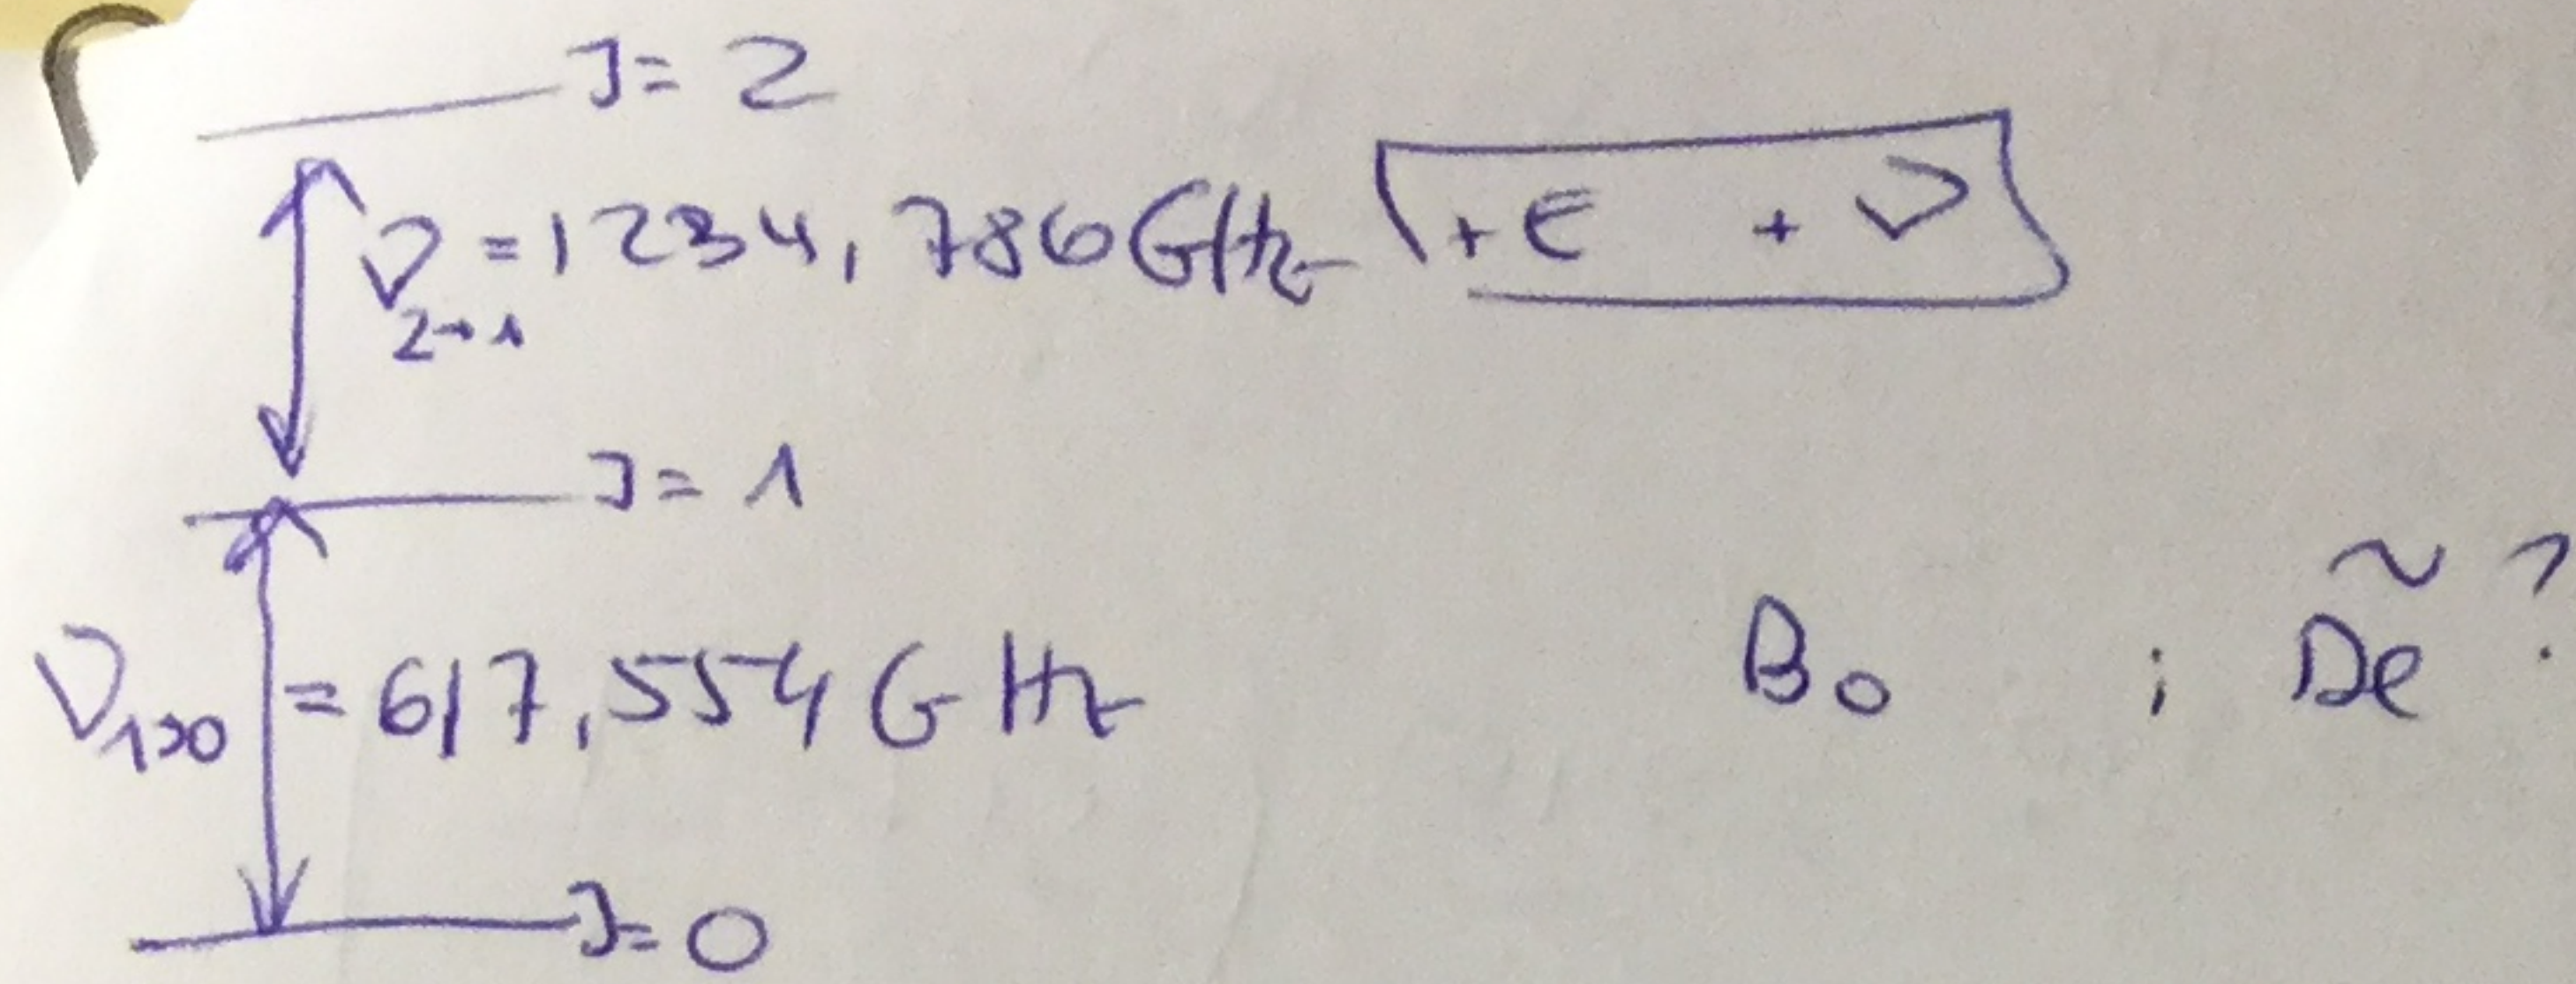 J = 2
ν 2→1 = 1234,786 GHz + E + ν
J = 1
ν 1→0 = 617,554 GHz B₀ ; D̃e ?
J = 0